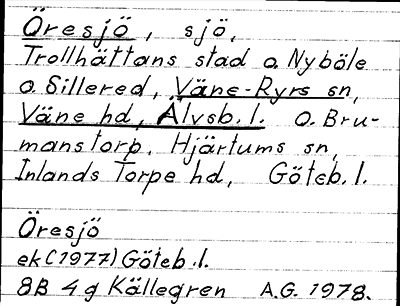 Öresjö, sjö,
Trollhättans stad o. Nyböle
o. Sillered, Väne-Ryrs sn,
Väne hd, Älvsb. l. o. Bru-
manstorp, Hjärtums sn,
Inlands Torpe hd, Göteb. l.
Öresjö
ek (1977) Göteb. l.
8B 4g Källegren A.G. 1978.